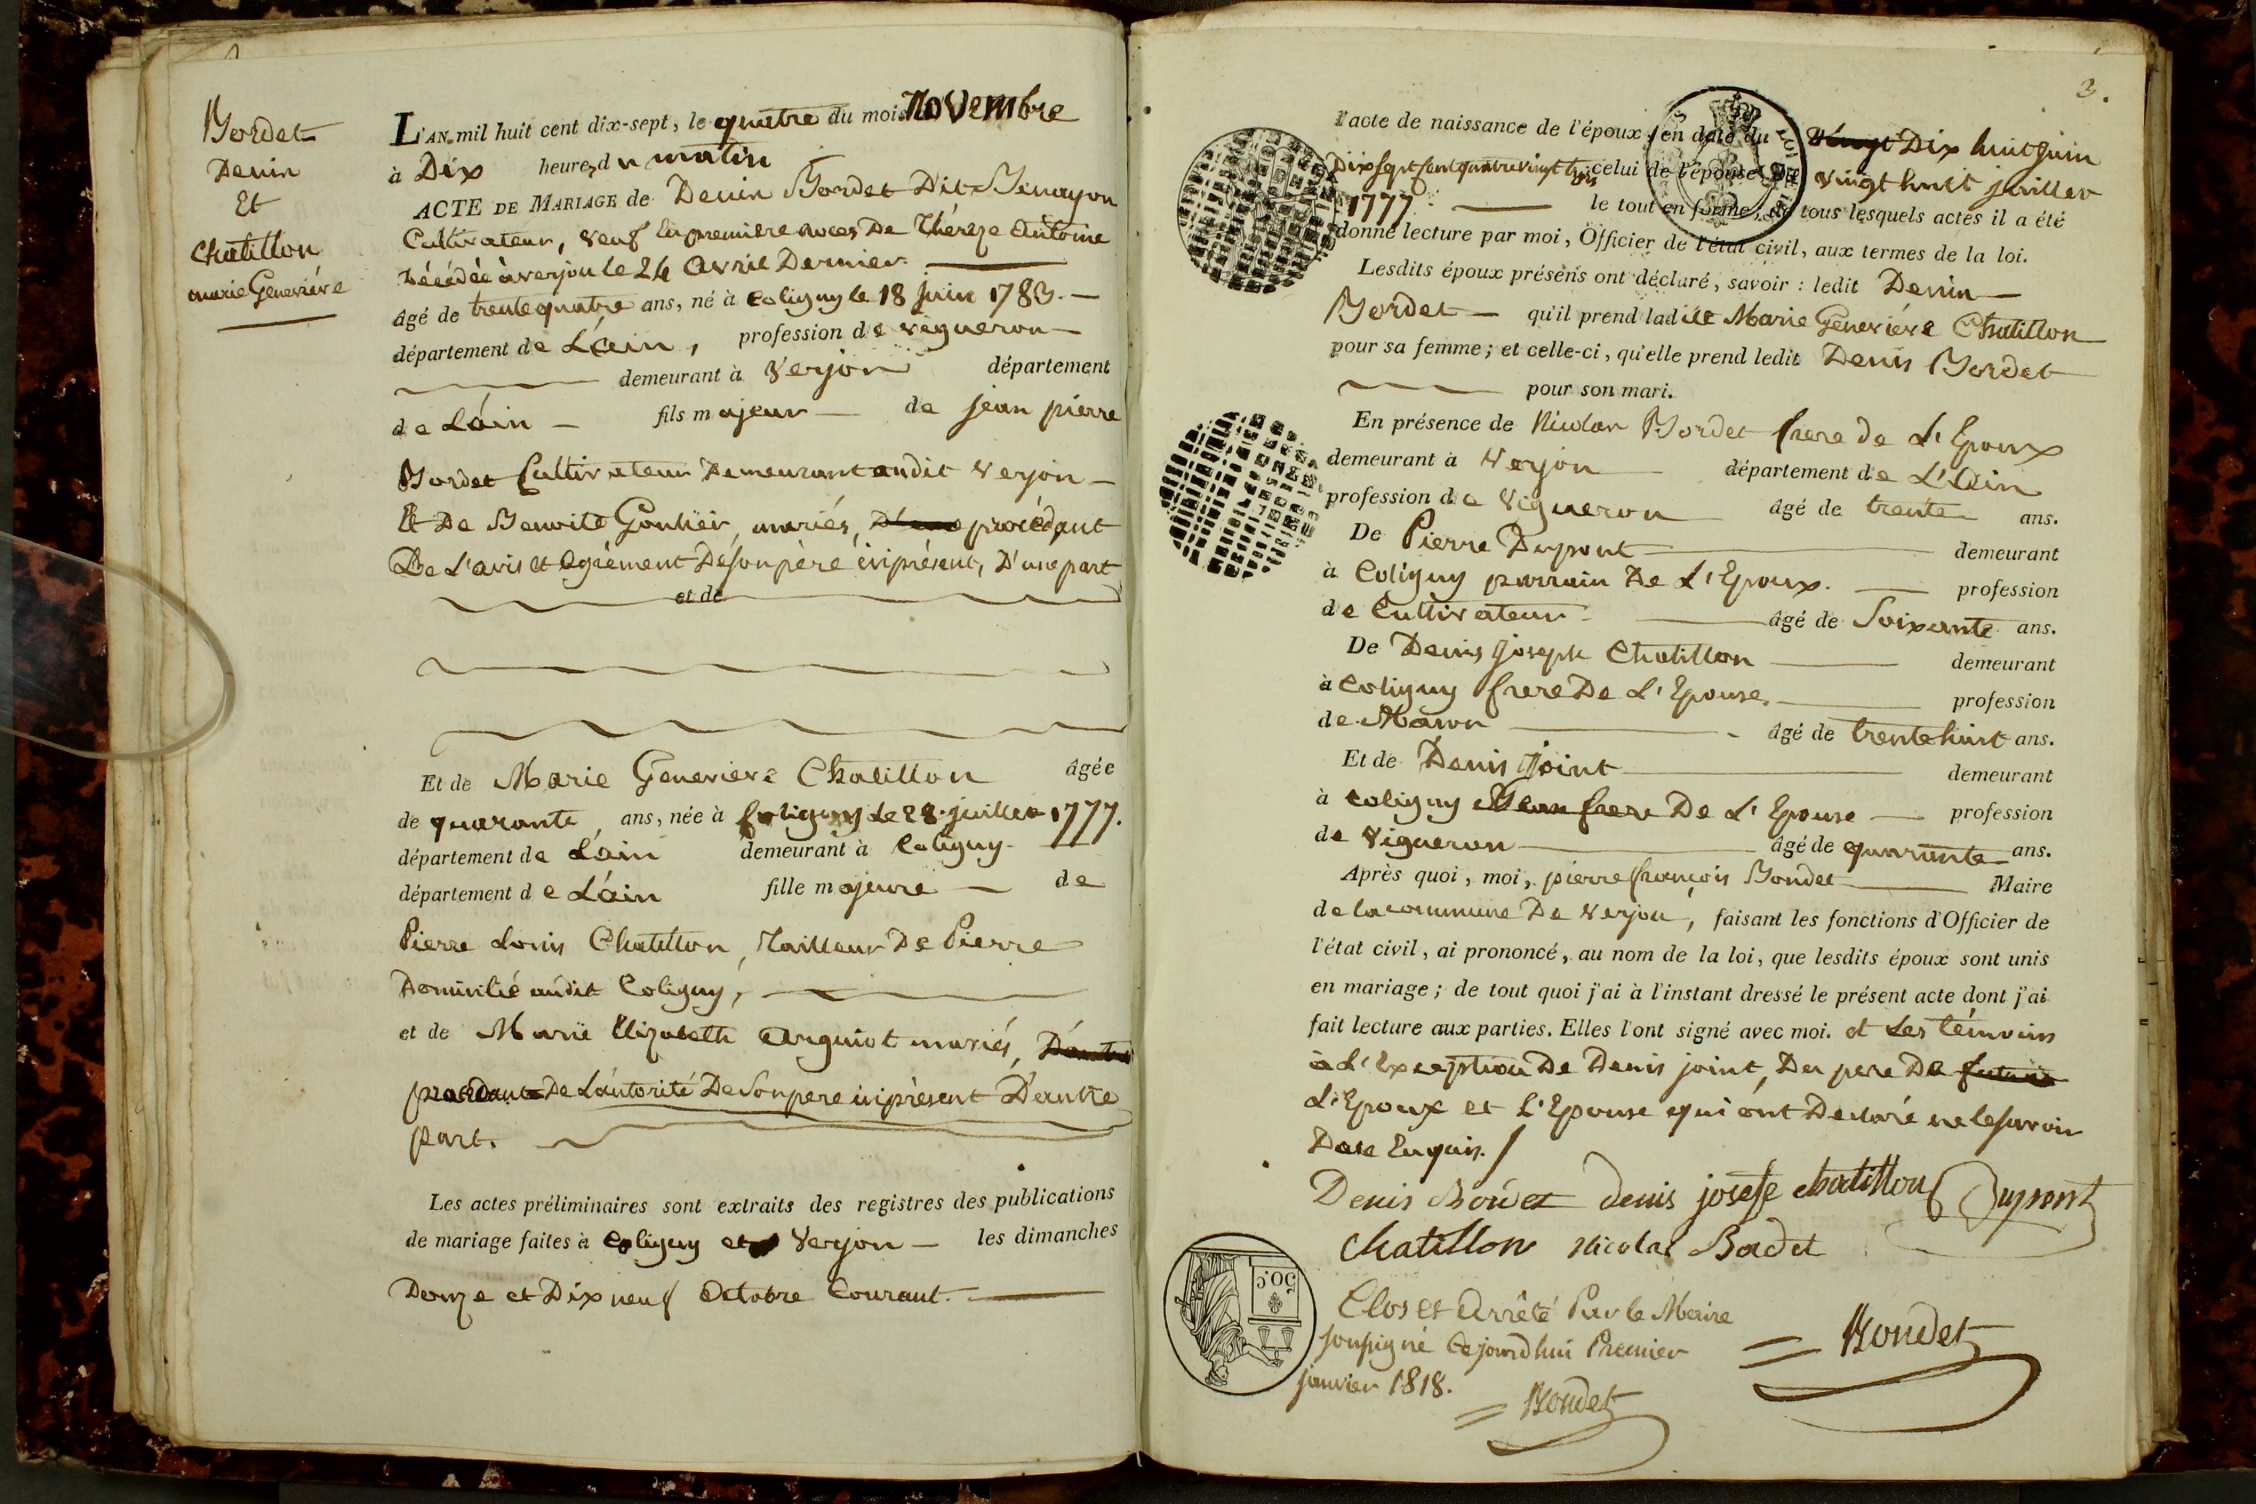 Bordet
Denis
Et
Chatillon
marie Geneviéve
L'AN mil huit cent dix-sept, le quatre du mois Novembre
à Dix heures du matin
ACTE DE MARIAGE de Denis Bordet Dit
Cultivateur, veuf en premiere noces De Théreze Antoine
Décédée à verjon le 24 Avril Dernier
âgé de trente quatre ans, né à Coligny le 18 Juin 1783.
département de L'ain, profession de vigneron
demeurant à Verjon département
de L'ain fils majeur de jean pierre
Bordet Cultivateur Demeurant audit Verjon
Et De Benoite mariés, procédant
De L'avis et Agrément De son père ici présent, D'une part
et de
Et de Marie Genevieve Chatillon âgée
de quarante ans, née à Coligny Le 28 juillet 1777.
département de L'ain demeurant à Coligny
département de L'ain fille majeure de
Pierre Louis Chatillon, Tailleur De Pierre
Domicilié audit Coligny,
et de Marie Elizabeth mariés, D'autre
procédant De L'autorité De Son pere ici présent D'autre
part.
Les actes préliminaires sont extraits des registres des publications
de mariage faites à Coligny et Verjon les dimanches
Douze et Dix neuf Octobre Courant.
3.
l'acte de naissance de l'époux, en date du vingt Dix huit Juin
Dix sept cent quatre vingt trois celui de l'épouse, de vingt huit juillet
1777 le tout en forme, de tous lesquels actes il a été
donné lecture par moi, Officier de l'état civil, aux termes de la loi.
Lesdits époux présens ont déclaré, savoir : ledit Denis
Bordet qu'il prend ladite Marie Geneviéve Chatillon
pour sa femme; et celle-ci, qu'elle prend ledit Denis Bordet
pour son mari.
En présence de Nicolas Bordet frere de L'Epoux
demeurant à Verjon département de L'Ain
profession de Vigneron âgé de trente ans.
De Pierre Dupont demeurant
à Coligny parrain De L'Epoux. profession
de Cultivateur âgé de Soixante ans.
De Denis Joseph Chatillon demeurant
à Coligny frere De L'Epouse profession
de Maçon âgé de trente huit ans.
Et de Denis Joint demeurant
à Coligny frere De L'Epouse profession
de Vigneron âgé de quarante ans.
Après quoi, moi, pierre françois Bondet Maire
de la commune De Verjon, faisant les fonctions d'Officier de
l'état civil, ai prononcé, au nom de la loi, que lesdits époux sont unis
en mariage; de tout quoi j'ai à l'instant dressé le présent acte dont j'ai
fait lecture aux parties. Elles l'ont signé avec moi. et Les témoins
à L'Exception De Denis joint, Du pere De
L'Epoux et L'Epouse qui ont Declaré ne le savoir
De ce Enquis.
Denis Bordet denis josefe chatillon Dupont
chatillon Nicolas Badet
50.C
Clos et Arrêté Par le Maire
soussigné Cejourdhui Premier
janvier 1818.
Bondet
Bondet